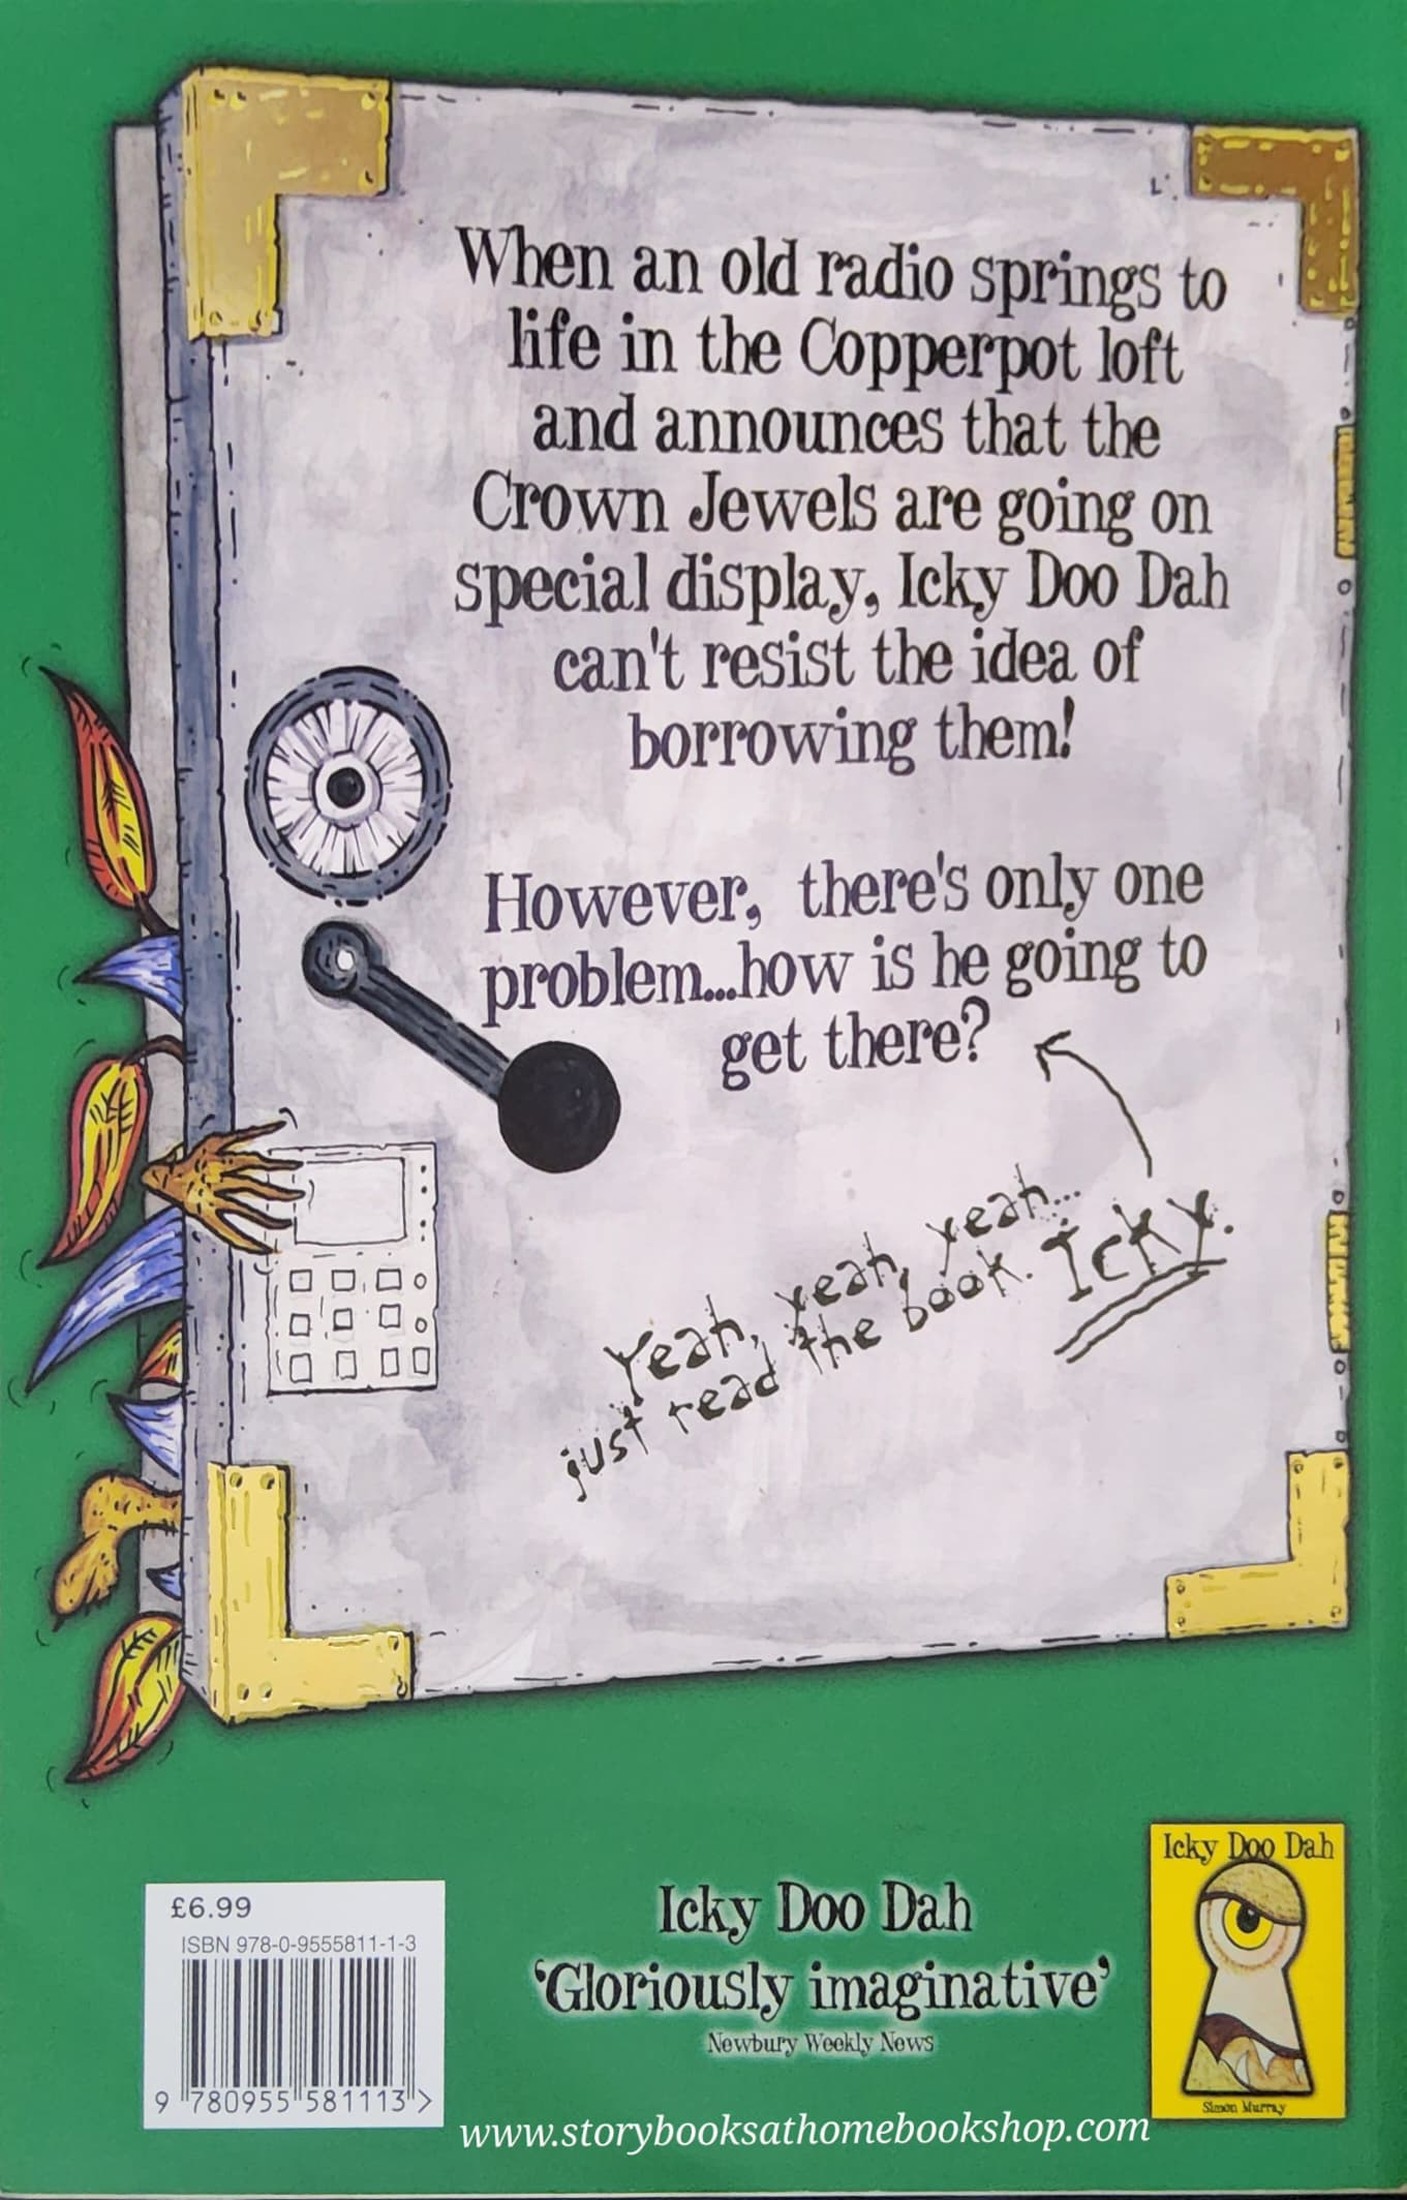 When an old radio springs to
life in the Copperpot loft
and announces that the
Crown Jewels are going on
special display, Icky Doo Dah
can't resist the idea of
borrowing them!
However, there's only one
problem...how is he going to
get there?
Yeah, yeah, yeah...
just read the book. Icky.
£6.99
ISBN 978-0-9555811-1-3
9 780955 581113 >
Icky Doo Dah
'Gloriously imaginative'
Newbury Weekly News
Icky Doo Dah
Simon Murray
www.storybooksathomebookshop.com